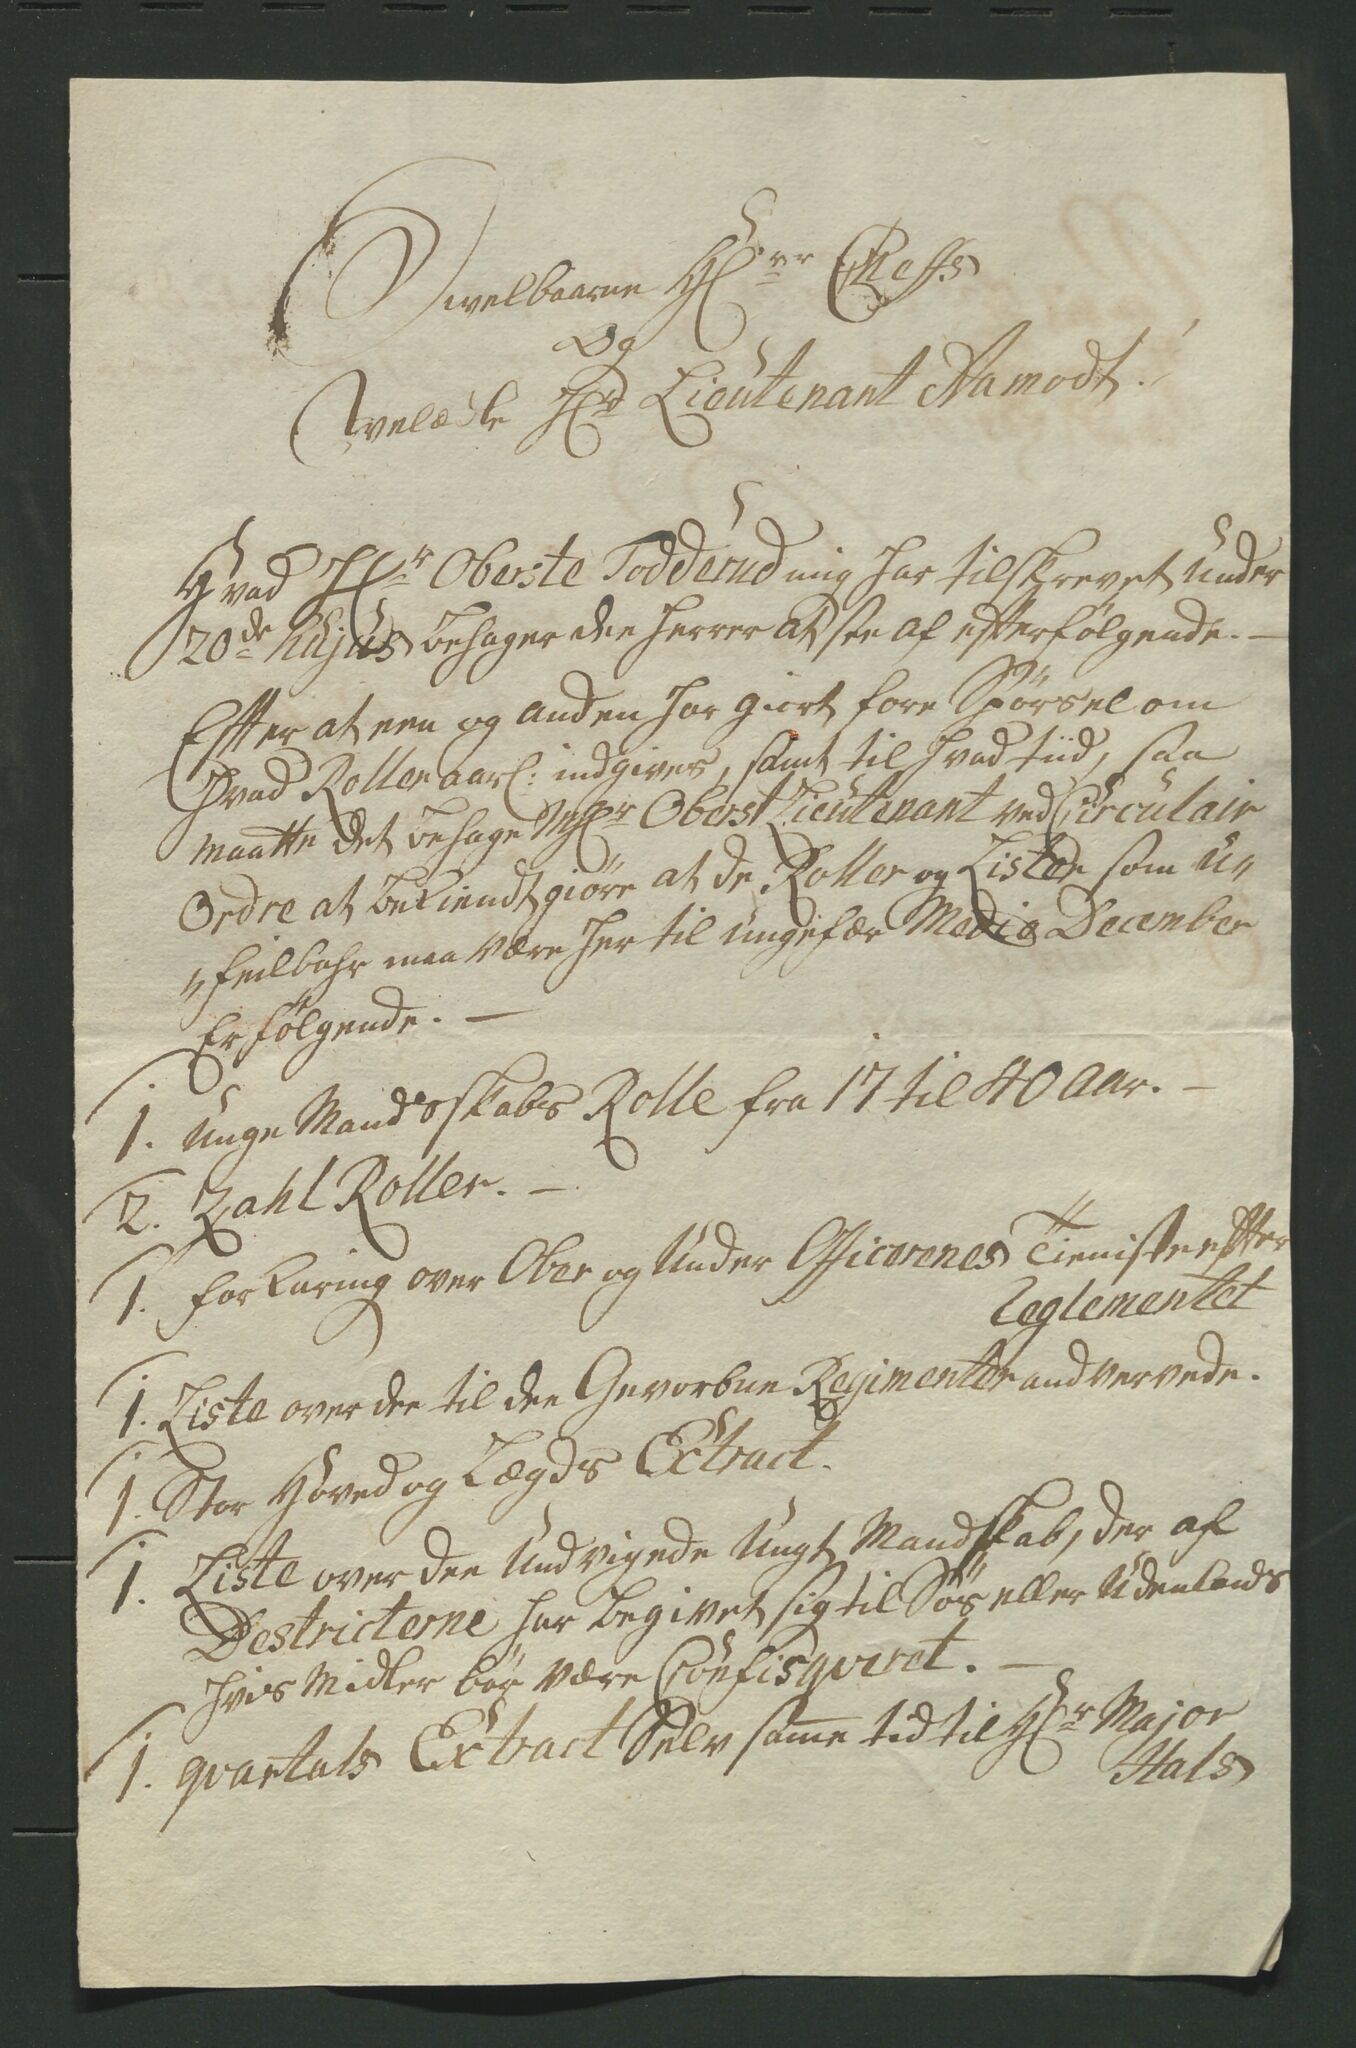 Velbaarne H.rr Cheffs
Og
Velædle H.r Lieutenant Aamodt!
Hvad H.r Oberste Todderud mig har tilskrevet under
20de hujus behager dee Herrer at see af efterfølgende. —
Efter at een og anden har giort fore Spørsel om
hvad Roller aarl: indgives, samt til hvad tiid, saa
maatte det behage H.r Oberst Lieutenant ved Circulair
Ordre at bekiendtgiøre at de Roller og Lister som u„
„feilbahr maa være her til ungefær Medio December
Er følgende. —
1. Unge Mandsskabs Rolle fra 17 til 40 Aar. —
2. Zahl Roller. —
1. forklaring over Ober og Under Officerenes Tieniste efter
Reglementet
1. Liste over dee til dee Gevorbne Regimenter andvervede.
1. Stor Hoved og Lægds Extract.
1. Liste over dee Undvigede Ungt Mandskab, der af
Destricterne har begivet sig til Søs eller Udenlands
hvis Midler bør være Confisqveret. —
1. qvartals Extract Selv samme tid til H.r Major
Hals